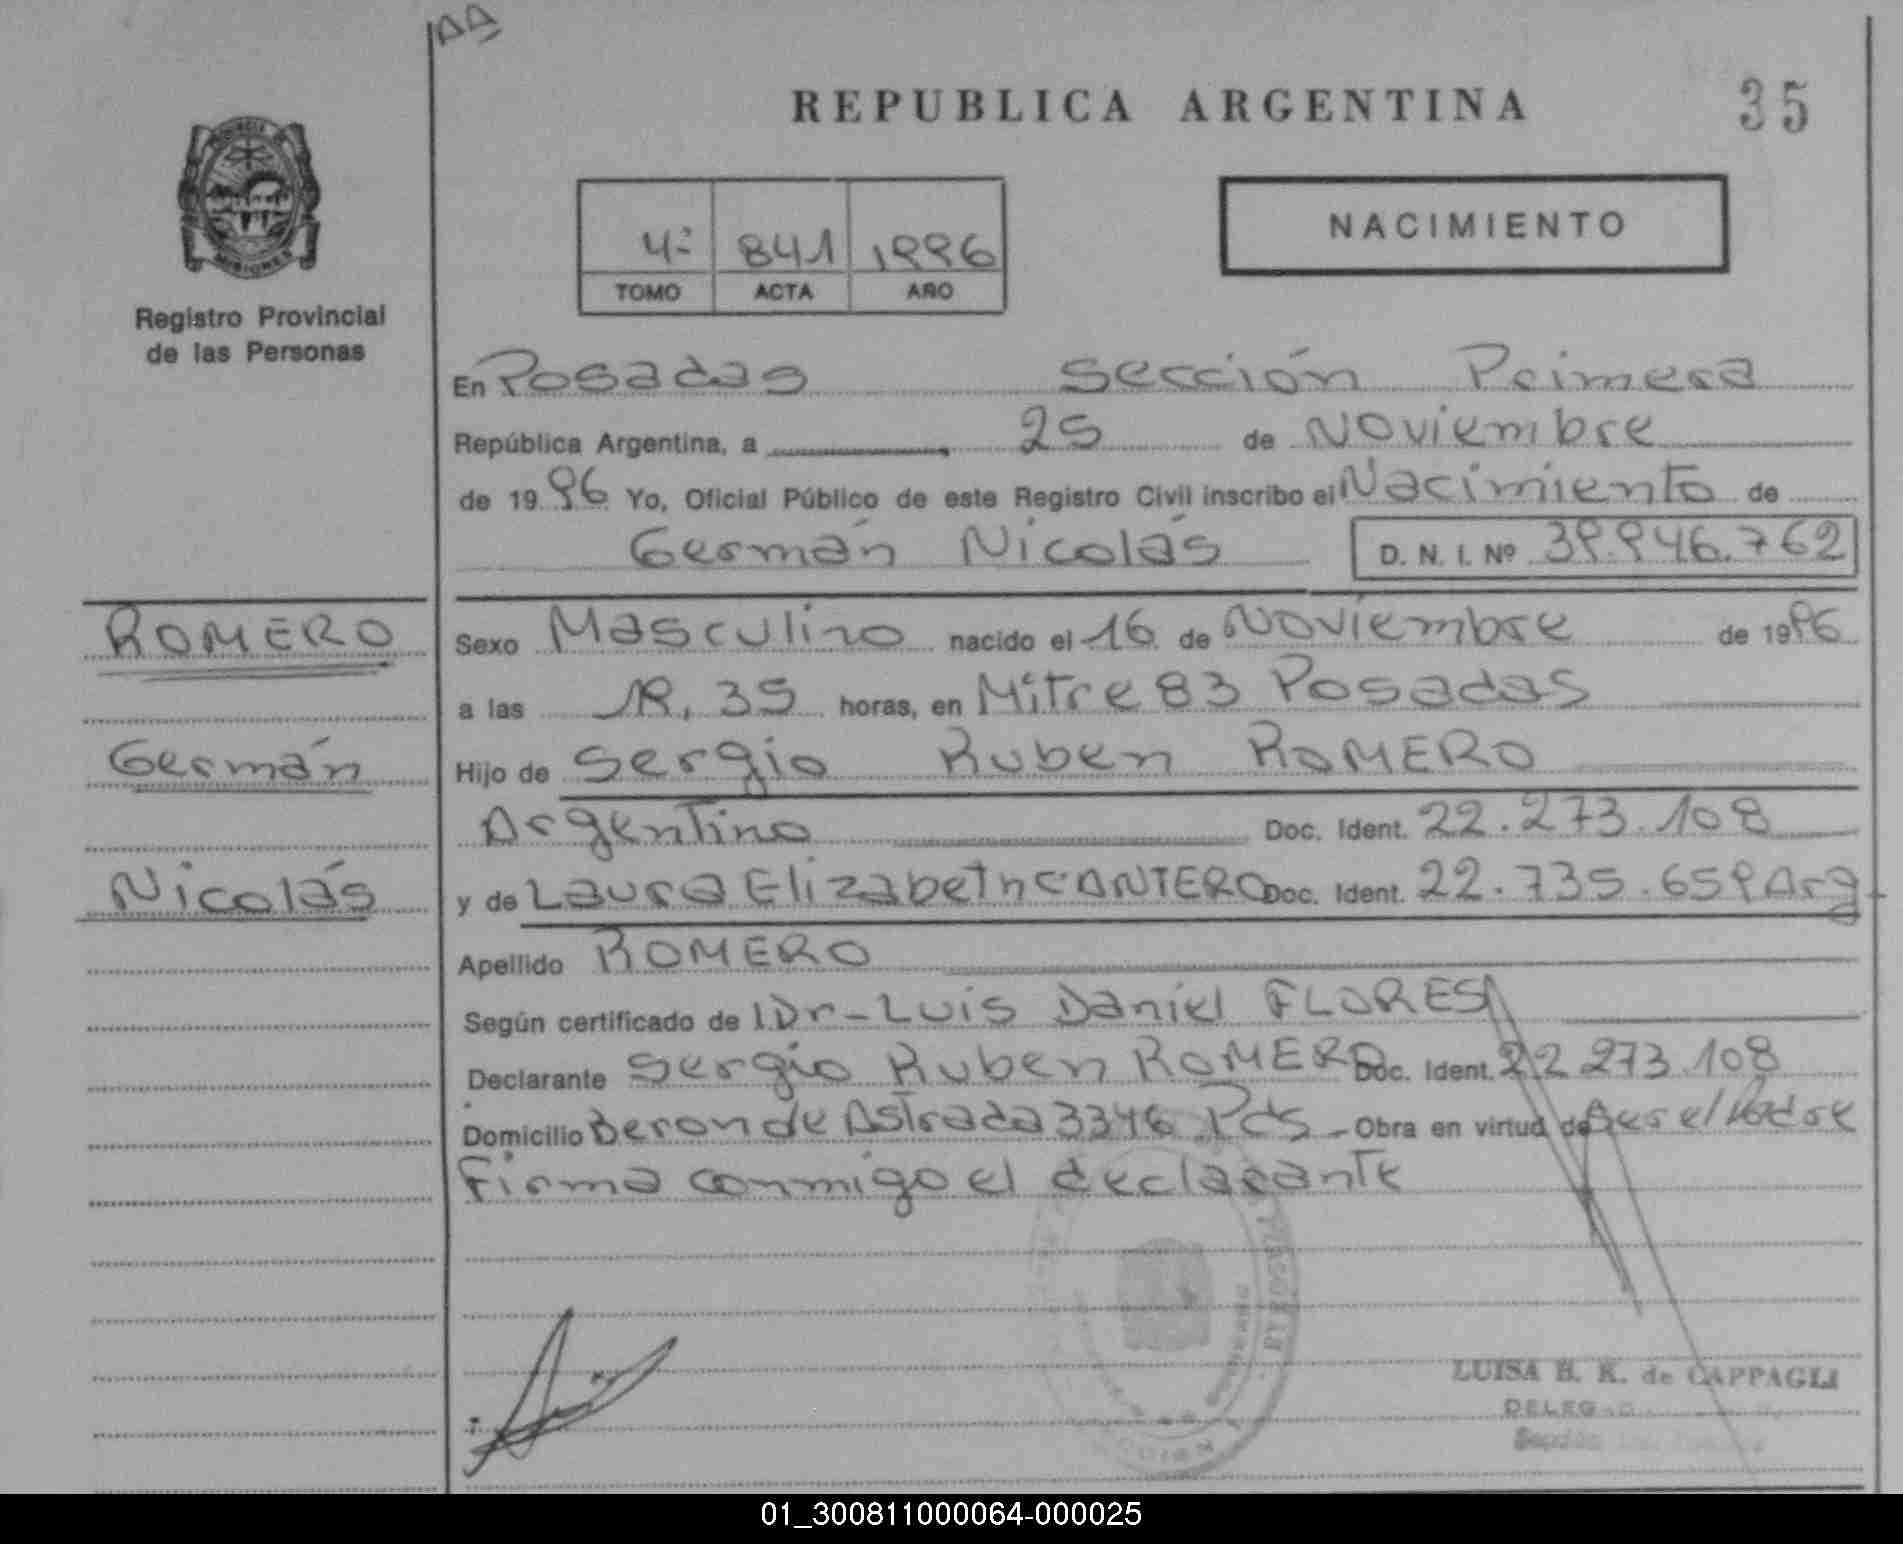 AA
REPUBLICA ARGENTINA
35
MISIONES
Registro Provincial
de las Personas
4º 841 1996
TOMO ACTA AÑO
NACIMIENTO
En Posadas Sección Primera
República Argentina, a 25 de Noviembre
de 1996 Yo, Oficial Público de este Registro Civil inscribo el Nacimiento de
Germán Nicolás D. N. I. Nº 39.946.762
ROMERO
Germán
Nicolás
Sexo Masculino nacido el 16 de Noviembre de 1996
a las 19,35 horas, en Mitre 83 Posadas
Hijo de Sergio Ruben ROMERO
Argentino Doc. Ident. 22.273.108
y de Laura Elizabeth CANTERO Doc. Ident. 22.735.659 Arg
Apellido ROMERO
Según certificado de Dr-Luis Daniel FLORES
Declarante Sergio Ruben ROMERO Doc. Ident. 22 273.108
Domicilio Beron de Astrada 3346 Pds - Obra en virtud de Ser el Padre
Firma conmigo el declarante
LUISA B. K. de CAPPAGLI
01_300811000064-000025